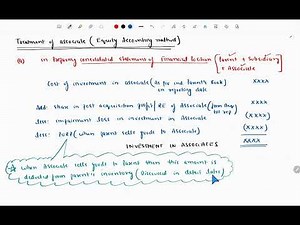 Treatment of associate (Equity Accounting method)
(b) in preparing consolidated statement of financial position (Parent + Subsidiary) + Associate
Cost of investment in associate (as per ind Parent's Book) xxxx
on reporting date
Add: share in post acquisition profit/RE of Associate (from Acq to rep) xxx
less: impairment loss investment in Associate (xxxx)
less: PURP (when parent sells goods to Associate) (xxxx)
INVESTMENT IN ASSOCIATES xxxx
when Associate sells goods to Parent then this amount is
deducted from parent's inventory (Discussed in detail later)